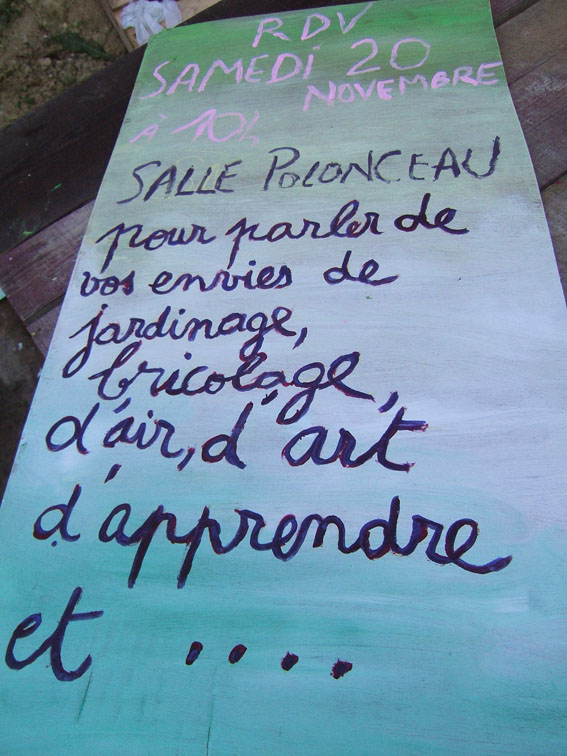 RDV
SAMEDI 20
NOVEMBRE
À 10h
SALLE POLONCEAU
pour parler de
vos envies de
jardinage,
bricolage,
d'air, d'art
d'apprendre
et ....